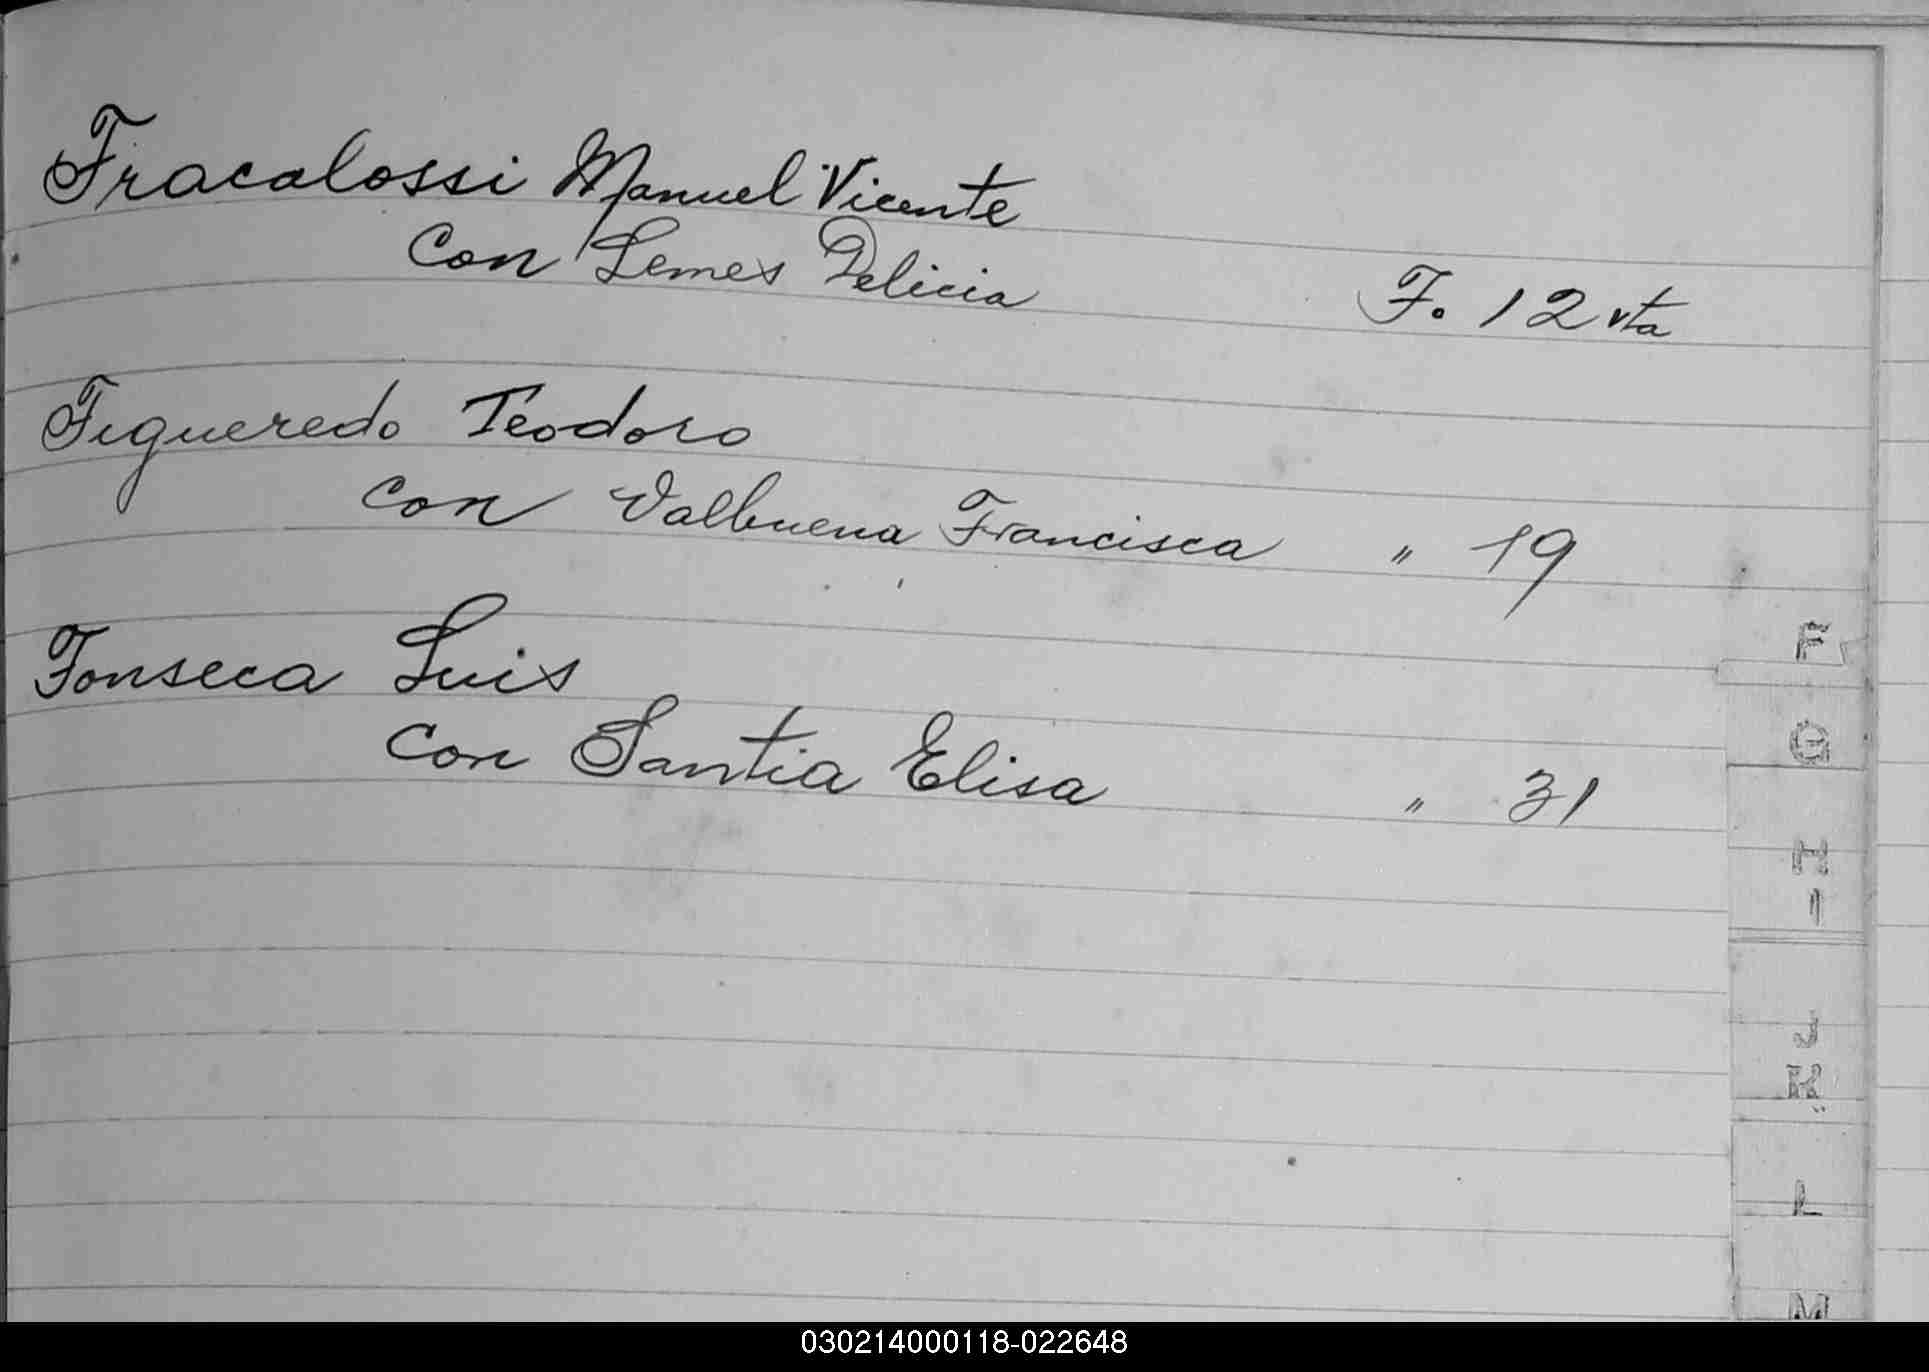 Fracalossi Manuel Vicente
Con Lemes Delicia F. 12 vta
Figueredo Teodoro
Con Valbuena Francisca " 19
Fonseca Luis
Con Santia Elisa " 31
F
G
H
I
J
K
L
M
030214000118-022648